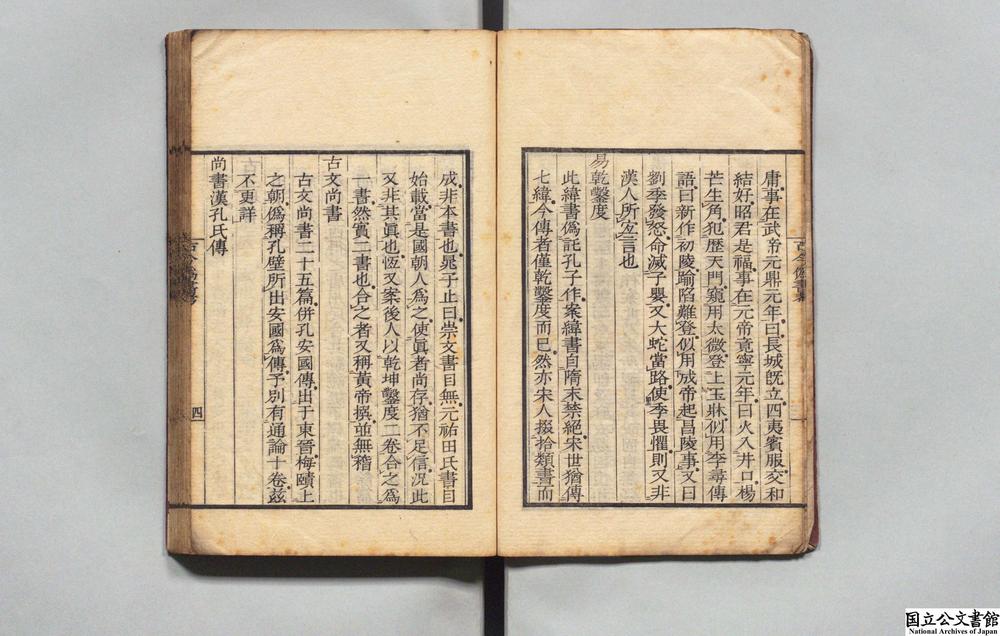 庸事在武帝元鼎元年曰長城旣立四夷賓服交和
結好昭君是福事在元帝竟寧元年曰火入井口楊
芒生角犯歷天門窺用太微登上玉牀似用李尋傳
語曰新作初陵踰陷難登似用成帝起昌陵事又曰
劉季發怒命滅子嬰又大蛇當路使季畏懼則又非
漢人所宜言也
易乾鑿度
此緯書爲託孔子作案緯書自隋末禁絕宋世猶傳
七緯今傳者僅乾鑿度而已然亦宋人掇拾類書而
成非本書也晁子止曰崇文書目無元祐田氏書目
始載當是國朝人爲之使眞者尚存猶不足信況此
又非其眞也恆又案後人以乾坤鑿度二卷合之爲
一書然實二書也合之者又稱黃帝撰並無稽
古文尚書
古文尚書二十五篇併孔安國傳出于東晉梅賾上
之朝僞稱孔壁所出安國爲傳予別有通論十卷茲
不更詳
尚書漢孔氏傳
四
国立公文書館
National Archives of Japan